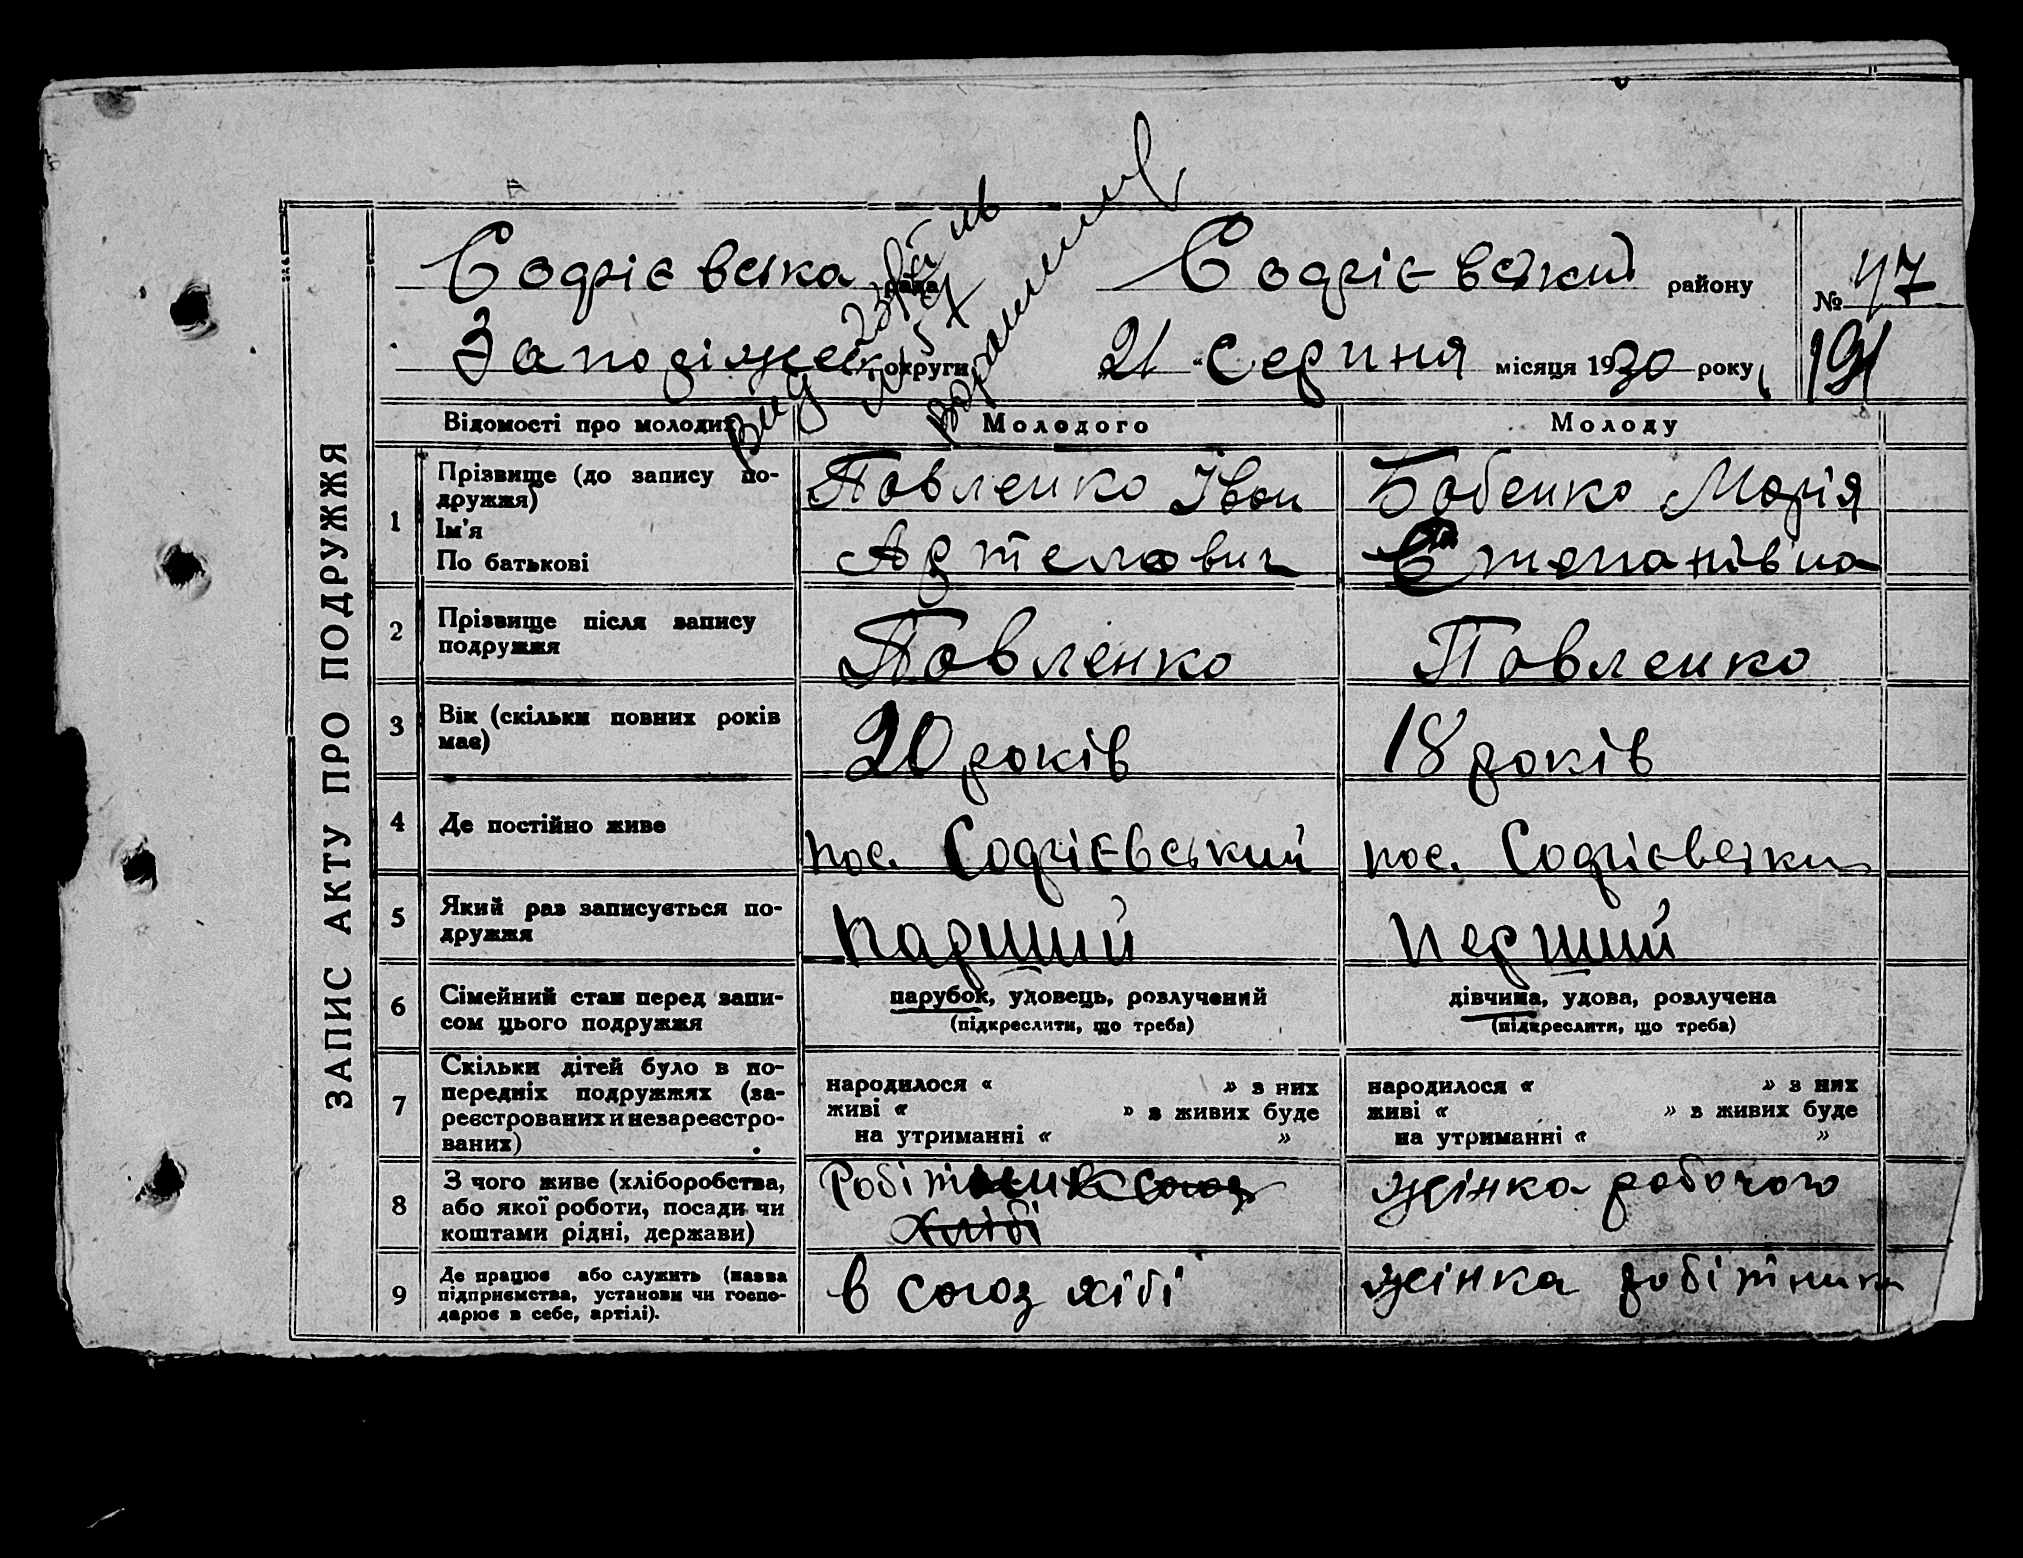 ЗАПИС АКТУ ПРО ПОДРУЖЖЯ
Софієвська рада Софієвський району № 47
Запоріжськ округи 21 " серпня місяця 1930 року 191
Відомості про молодих Молодого Молоду
1 Прізвище (до запису подружжя) Павленко Іван Бабенко Марія
Ім'я
По батькові Артемович Степанівна
2 Прізвище після запису Павленко Павленко
подружжя
3 Вік (скільки повних років 20 років 18 років
має)
4 Де постійно живе пос. Софієвський пос. Софієвський
5 Який раз записується по-
дружжя парший перший
6 Сімейний стан перед запи- парубок, удовець, розлучений дівчина, удова, розлучена
сом цього подружжя (підкреслити, що треба) (підкреслити, що треба)
7 Скільки дітей було в по-
передніх подружжях (за- народилося « » з них народилося « » з них
реєстрованих и незареєстро- живі « » з живих буде живі « » з живих буде
ваних) на утриманні « » на утриманні « »
8 З чого живе (хліборобства, Робітник союз жінка робочого
або якої роботи, посади чи
коштами рідні, держави) хлібі
9 Де працює або служить (назва
підприємства, установи чи госпо- в союз хібі жінка робітника
дарює в себе, артілі).